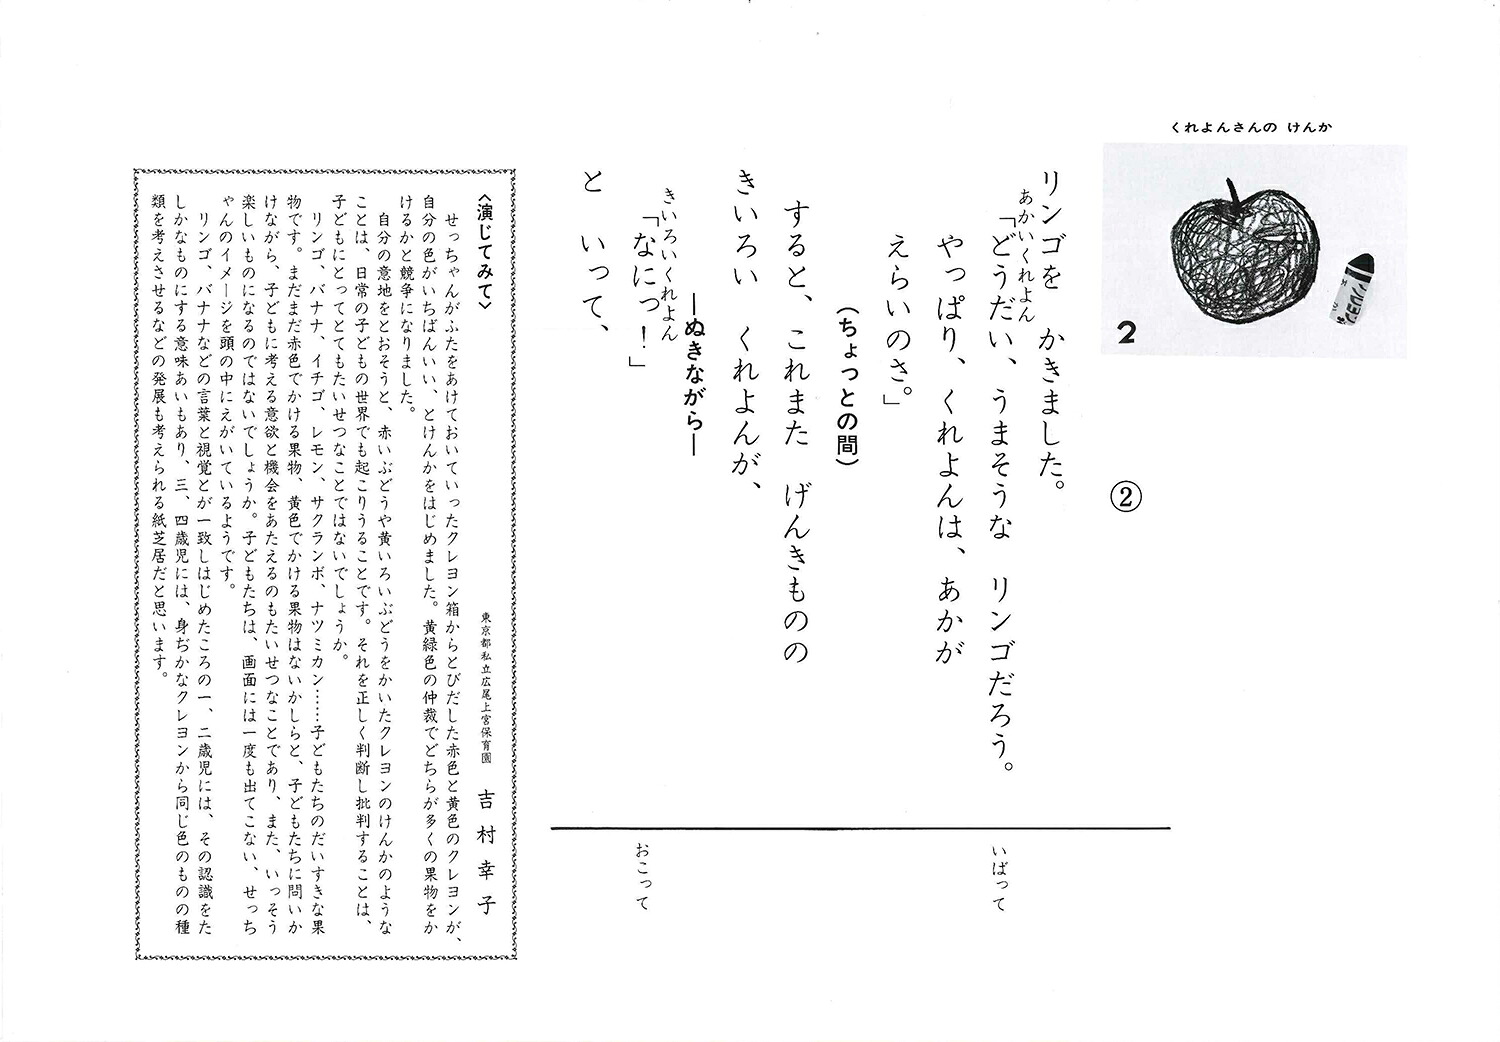 くれよんさんの けんか
2
②
リンゴを かきました。
あかいくれよん
「どうだい、うまそうな リンゴだろう。
いばって
やっぱり、くれよんは、あかが
えらいのさ。」
(ちょっとの間)
すると、これまた げんきものの
きいろい くれよんが、
―ぬきながら―
きいろいくれよん
「なにっ!」
おこって
と いって、
〈演じてみて〉
東京都私立広尾上宮保育園 吉村幸子
せっちゃんがふたをあけておいていったクレヨン箱からとびだした赤色と黄色のクレヨンが、
自分の色がいちばんいい、とけんかをはじめました。黄緑色の仲裁でどちらが多くの果物をか
けるかと競争になりました。
自分の意地をとおそうと、赤いぶどうや黄いろいぶどうをかいたクレヨンのけんかのような
ことは、日常の子どもの世界でも起こりうることです。それを正しく判断し批判することは、
子どもにとってとてもたいせつなことではないでしょうか。
リンゴ、バナナ、イチゴ、レモン、サクランボ、ナツミカン……子どもたちのだいすきな果
物です。まだまだ赤色でかける果物、黄色でかける果物はないかしらと、子どもたちに問いか
けながら、子どもに考える意欲と機会をあたえるのもたいせつなことであり、また、いっそう
楽しいものになるのではないでしょうか。子どもたちは、画面には一度も出てこない、せっち
ゃんのイメージを頭の中にえがいているようです。
リンゴ、バナナなどの言葉と視覚とが一致しはじめたころの一、二歳児には、その認識をた
しかなものにする意味あいもあり、三、四歳児には、身ぢかなクレヨンから同じ色のものの種
類を考えさせるなどの発展も考えられる紙芝居だと思います。